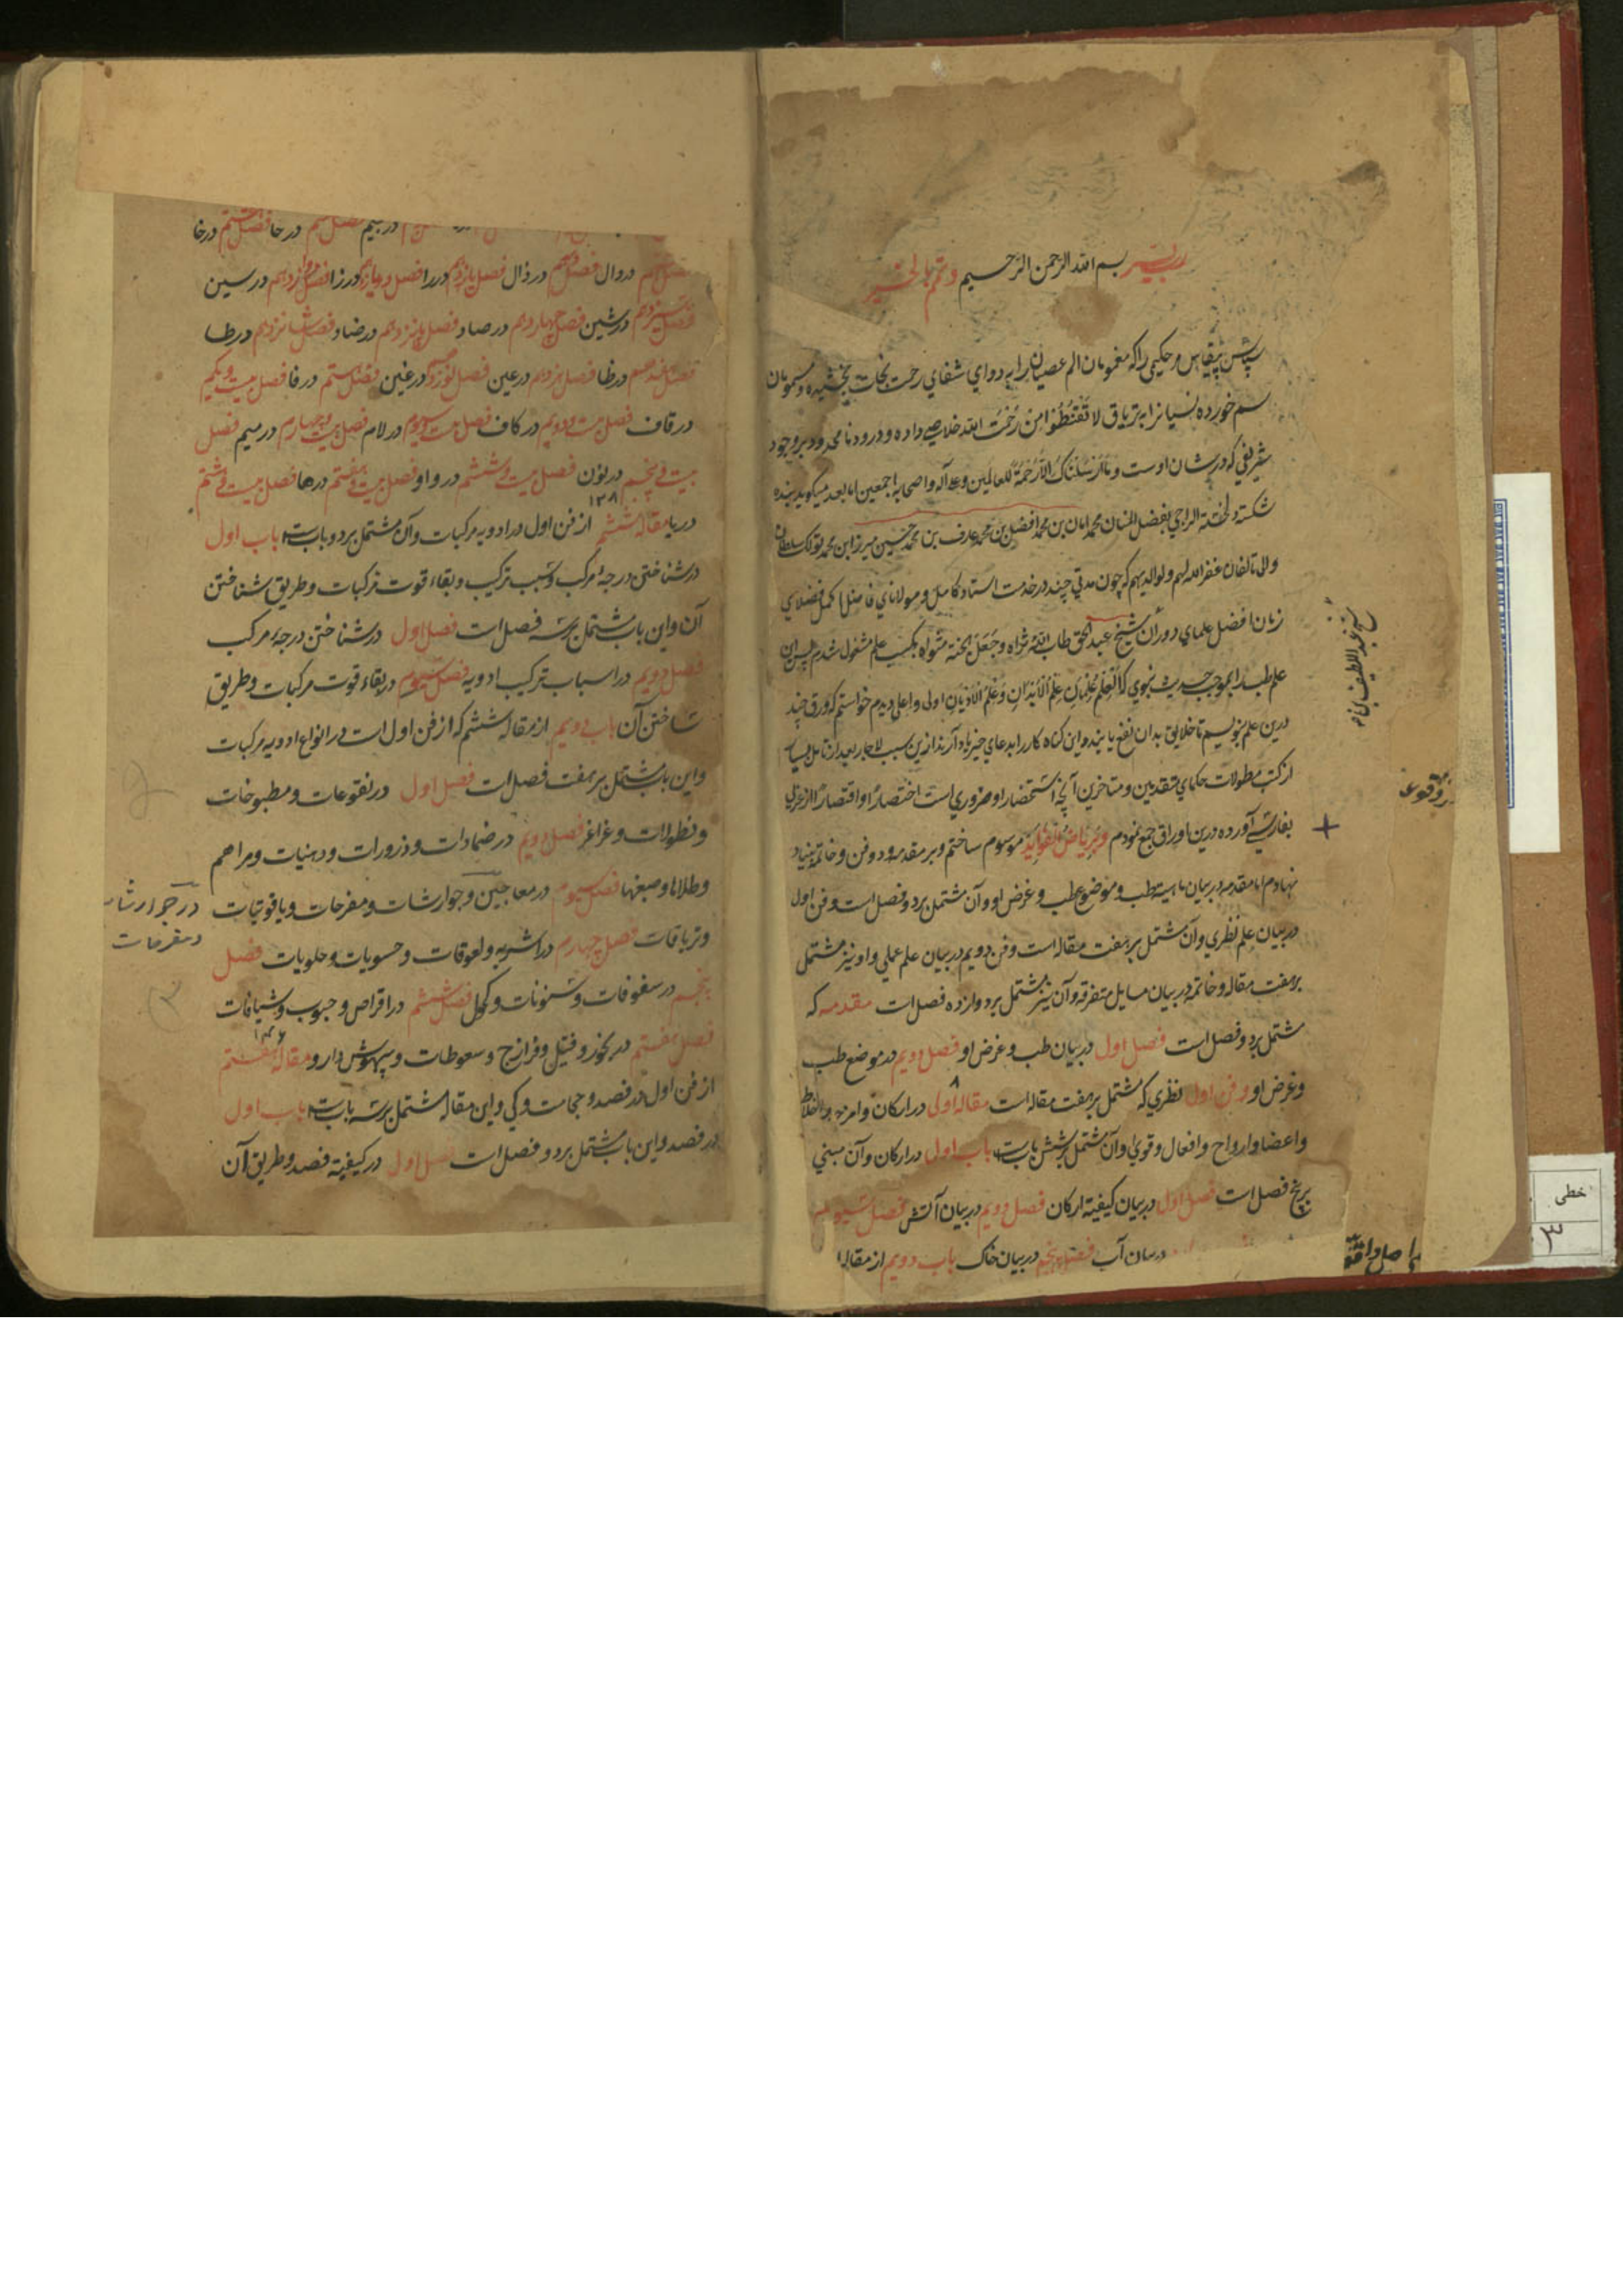 رب یسر بسم الله الرحمن الرحیم وتمم بالخیر
سپاس بیقیاس مر حکیمی را که مغمومان الم عصیان را به دوای شفای رحمت نجات بخشیده و مسمومان
سم خورده نسیان را به تریاق لا تقنطوا من رحمت الله خلاصی داده و درود نامحدود بر وجود
شریفی که در شان اوست وما ارسلنک الا رحمة للعالمین وعلی آله واصحابه اجمعین اما بعد میگوید بنده
شکسته الراجی بفضل المنان محمد امان بن محمد افضل بن محمد عارف بن محمد حسین میرزا بن محمد تولک سلطان
والی تالقان غفر الله لهم ولوالدیهم که چون مدتی چند در خدمت استاد کامل و مولانای فاضل اکمل فضلای
زمان افضل علمای دوران شیخ عبد الحق طاب الله ثراه وجعل الجنة مثواه بکسب علم مشغول شدم پس ازان
علم طب را بموجب حدیث نبوی که العلم علمان علم الابدان وعلم الادیان اولی و اعلی دیدم خواستم که ورق چند
درین علم بنویسم تا خلایق بدان نفع یابند و این گناه کار را بدعای خیر یاد آرند ازین سبب لاچار بعد از تامل بسیار
از کتب مطولات حکمای متقدمین و متاخرین آنچه استحضار او ضروری است اختصارا و اقتصارا از عربی
بفارسی آورده درین اوراق جمع نمودم و بریاض الفواید موسوم ساختم و بر مقدمه و دو فن و خاتمه بنیاد
نهادم اما مقدمه در بیان ماهیة طب و موضوع طب و غرض او و آن مشتمل بر دو فصل است و فن اول
در بیان علم نظری و آن مشتمل بر هفت مقاله است و فن دویم در بیان علم عملی و او نیز مشتمل
بر هفت مقاله و خاتمه در بیان مسایل متفرقه و آن نیز مشتمل بر دوازده فصل است مقدمه که
مشتمل بر دو فصل است فصل اول در بیان طب و غرض او فصل دویم در موضع طب
و غرض او و فن اول نظری که مشتمل بر هفت مقاله است مقاله اولی در ارکان و امزجه و اخلاط
و اعضا و ارواح و افعال و قوی و آن مشتمل بر شش باب است باب اول در ارکان و آن مبنی
بر پنج فصل است فصل اول در بیان کیفیة ارکان فصل دویم در بیان آتش فصل سیوم
در بیان آب فصل پنجم در بیان خاک باب دویم از مقاله
شیخ عبد اللطیف
۸
در جیم در حا فصل هشتم در خا
در دال فصل دهم در ذال فصل یازدهم در را فصل دوازدهم در زا در سین
در شین فصل چهاردهم در صاد فصل پانزدهم در ضاد فصل شانزدهم در طا
فصل هفدهم در ظا فصل هژدهم در عین فصل نوزدهم در غین فصل بیستم در فا فصل بیست و یکم
در قاف فصل بیست و دویم در کاف فصل بیست و سیوم در لام فصل بیست و چهارم در میم فصل
بیست و پنجم در نون فصل بیست و ششم در واو فصل بیست و هفتم در ها فصل بیست و هشتم
در یا مقاله ششم از فن اول در ادویه مرکبات و آن مشتمل بر دو باب است باب اول
۱۳۸
در شناختن درجه مرکب و سبب ترکیب و بقاء قوت مرکبات و طریق شناختن
آن و این باب مشتمل بر سه فصل است فصل اول در شناختن درجه مرکب
فصل دویم در اسباب ترکیب ادویه فصل سیوم در بقاء قوت مرکبات و طریق
شناختن آن باب دویم از مقاله ششم که از فن اول است در انواع ادویه مرکبات
و این باب مشتمل بر هفت فصل است فصل اول در نقوعات و مطبوخات
و نطولات و غراغر فصل دویم در ضمادات و ذرورات و دهنیات و مراهم
و طلاها و صبغها فصل سیوم در معاجین و جوارشات و مفرحات و یاقوتیات
و تریاقات فصل چهارم در اشربه و لعوقات و حسویات و حلویات فصل
پنجم در سفوفات و سنونات و کحل فصل ششم در اقراص و حبوب و شیافات
فصل هفتم در بخور و فتیل و فرازج و سعوطات و بیهوش دارو مقاله هفتم
از فن اول در فصد و حجامت و کی و این مقاله مشتمل بر سه باب است باب اول
در فصد و این باب مشتمل بر دو فصل است فصل اول در کیفیة فصد و طریق آن
در جوارشات
و مفرحات
خطی
۳